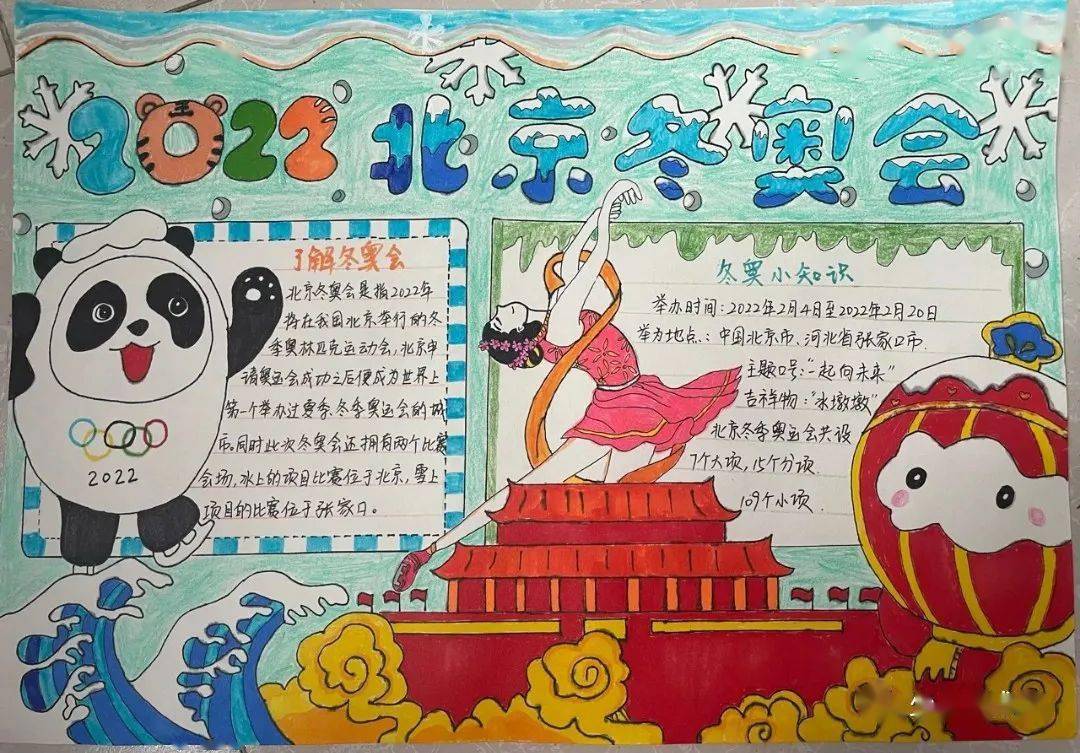 2022北京冬奥会
了解冬奥会
北京冬奥会是指2022年
将在我国北京举行的冬
季奥林匹克运动会,北京申
请奥运会成功之后便成为世界上
第一个举办过夏季、冬季奥运会的城
市。同时此次冬奥会还拥有两个比赛
会场,冰上的项目比赛位于北京,雪上
项目的比赛位于张家口。
2022
冬奥小知识
举办时间:2022年2月4日至2022年2月20日
举办地点:中国北京市、河北省张家口市.
主题口号:"一起向未来"
吉祥物:"冰墩墩"
北京冬季奥运会共设
7个大项,15个分项.
109个小项.